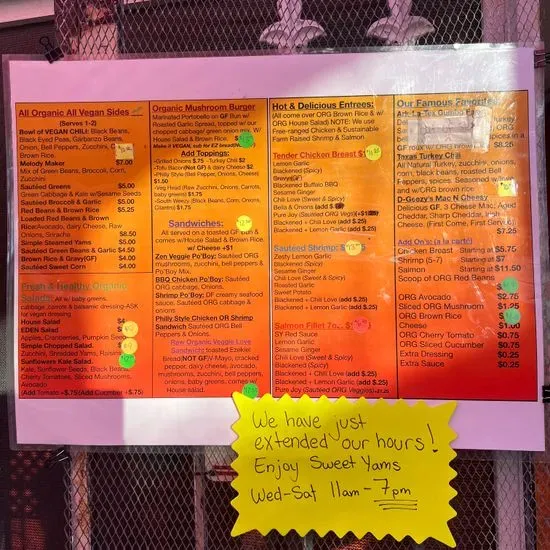 All Organic All Vegan Sides
(Serves 1-2)
Bowl of VEGAN CHILI: Black Beans,
Black Eyed Peas, Garbanzo Beans,
Onion, Bell Peppers, Zucchini,
Brown Rice.
Melody Maker $7.00
Mix of Green Beans, Broccoli, Corn,
Zucchini
Sautéed Greens $5.00
Green Cabbage & Kale w/Sesame Seeds
Sautéed Broccoli & Garlic $5.00
Red Beans & Brown Rice $5.25
Loaded Red Beans & Brown
Rice:Avocado, dairy Cheese, Raw
Onions, Sriracha $8.50
Simple Steamed Yams $5.00
Sautéed Green Beans & Garlic $4.50
Brown Rice & Gravy(GF) $4.00
Sautéed Sweet Corn $4.00
Fresh & Healthy Organic
Salads: All w/ baby greens,
cabbage, corn & balsamic dressing-ASK
for vegan dressing
House Salad
EDEN Salad
Apples, Cranberries, Pumpkin Seeds
Simple Chopped Salad
Zucchini, Shredded Yams, Raisins
Sunflowers Kale Salad.
Kale, Sunflower Seeds, Black Beans,
Cherry Tomatoes, Sliced Mushrooms,
Avocado
(Add Tomato +$.75)(Add Cucumber +$.75)
Organic Mushroom Burger
Marinated Portobello on GF Bun w/
Roasted Garlic Spread, topped w/ our
chopped cabbage/ green onion mix. W/
House Salad & Brown Rice.
Make it VEGAN, sub for EZ bread
Add Toppings:
+Grilled Onions $.75 -Turkey Chili $2
+Tofu Bacon (Not GF) & dairy Cheese $2
+Philly Style (Bell Pepper, Onions, Cheese)
$1.50
+Veg Head (Raw Zucchini, Onions, Carrots,
baby greens) $1.75
+South Weezy (Black Beans, Corn, Onions)
$1.75
Sandwiches:
All served on a toasted GF bun &
comes w/House Salad & Brown Rice.
w/ Cheese +$1
Zen Veggie Po'Boy: Sautéed ORG
zucchini, bell peppers &
mushrooms,
Po'Boy Mix.
BBQ Chicken Po'Boy: Sautéed
ORG cabbage, Onions.
Shrimp Po'Boy: DF creamy seafood
sauce, Sautéed ORG cabbage &
onions
Philly Style Chicken OR Shrimp
Sandwich Sautéed ORG Bell
Peppers & Onions.
Raw Organic Veggie Love
Sandwich: toasted Ezekiel
Bread(NOT GF)/ Mayo, cracked
pepper, dairy cheese, avocado,
mushrooms, zucchini, bell peppers,
onions, baby greens, comes w/
House salad.
Hot & Delicious Entrees:
(All come over ORG Brown Rice & w/
ORG House Salad) NOTE: We use
Free-ranged Chicken & Sustainable
Farm Raised Salmon & Shrimp
Tender Chicken Breast
Lemon Garlic
Blackened (Spicy)
Gravy(GF)
Blackened Buffalo BBQ
Sesame Ginger
Chili Love (Sweet & Spicy)
Bella & Onions (add $
Pure Joy (Sautéed ORG Veggies)
Blackened + Chili Love (add $.25)
Blackened + Lemon Garlic (add $.25)
Sautéed Shrimp:
Zesty Lemon Garlic
Blackened (Spicy)
Sesame Ginger
Chili Love (Sweet & Spicy)
Roasted Garlic
Sweet Potato
Blackened + Chili Love (add $.25)
Blackened + Lemon Garlic (add $.25)
Salmon Fillet 7oz.
SY Red Sauce
Lemon Garlic
Sesame Ginger
Chili Love (Sweet & Spicy)
Blackened (Spicy)
Blackened + Chili Love (add $.25)
Blackened + Lemon Garlic (add $.25)
Pure Joy (Sautéed ORG Veggies)
Our Famous Favorites
Ark-La-Tex Gumbo
$8.25
Texas Turkey Chili
All Natural Turkey, zucchini, onions,
corn, black beans, roasted Bell
Peppers, spices. Seasoned w/
and w/ORG brown rice
D-Geozy's Mac N Cheesy
Delicious GF, 3 Cheese Mac: Aged
Cheddar, Sharp Cheddar,
Cheese. (First Come, First Served)
$7.25
Add On's: (a la carte)
Chicken Breast Starting at $5.75
Shrimp (5-7) Starting at $7
Salmon Starting at $11.50
Scoop of ORG Red Beans
ORG Avocado $2.75
Sliced ORG Mushroom $1.25
ORG Brown Rice
Cheese $1.00
ORG Cherry Tomato $0.75
ORG Sliced Cucumber $0.75
Extra Dressing $0.25
Extra Sauce $0.25
We have just
extended our hours!
Enjoy Sweet Yams
Wed-Sat 11am-7pm